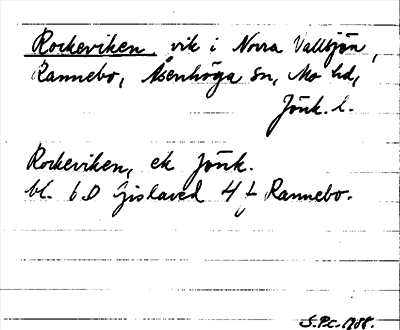 Rockeviken, vik i Norra Vallsjön,
Rannebo, Åsenhöga sn, Mo hd,
Jönk. l.
Rockeviken, ek Jönk.
bl. 6D Gislaved 4 f Rannebo.
1988.